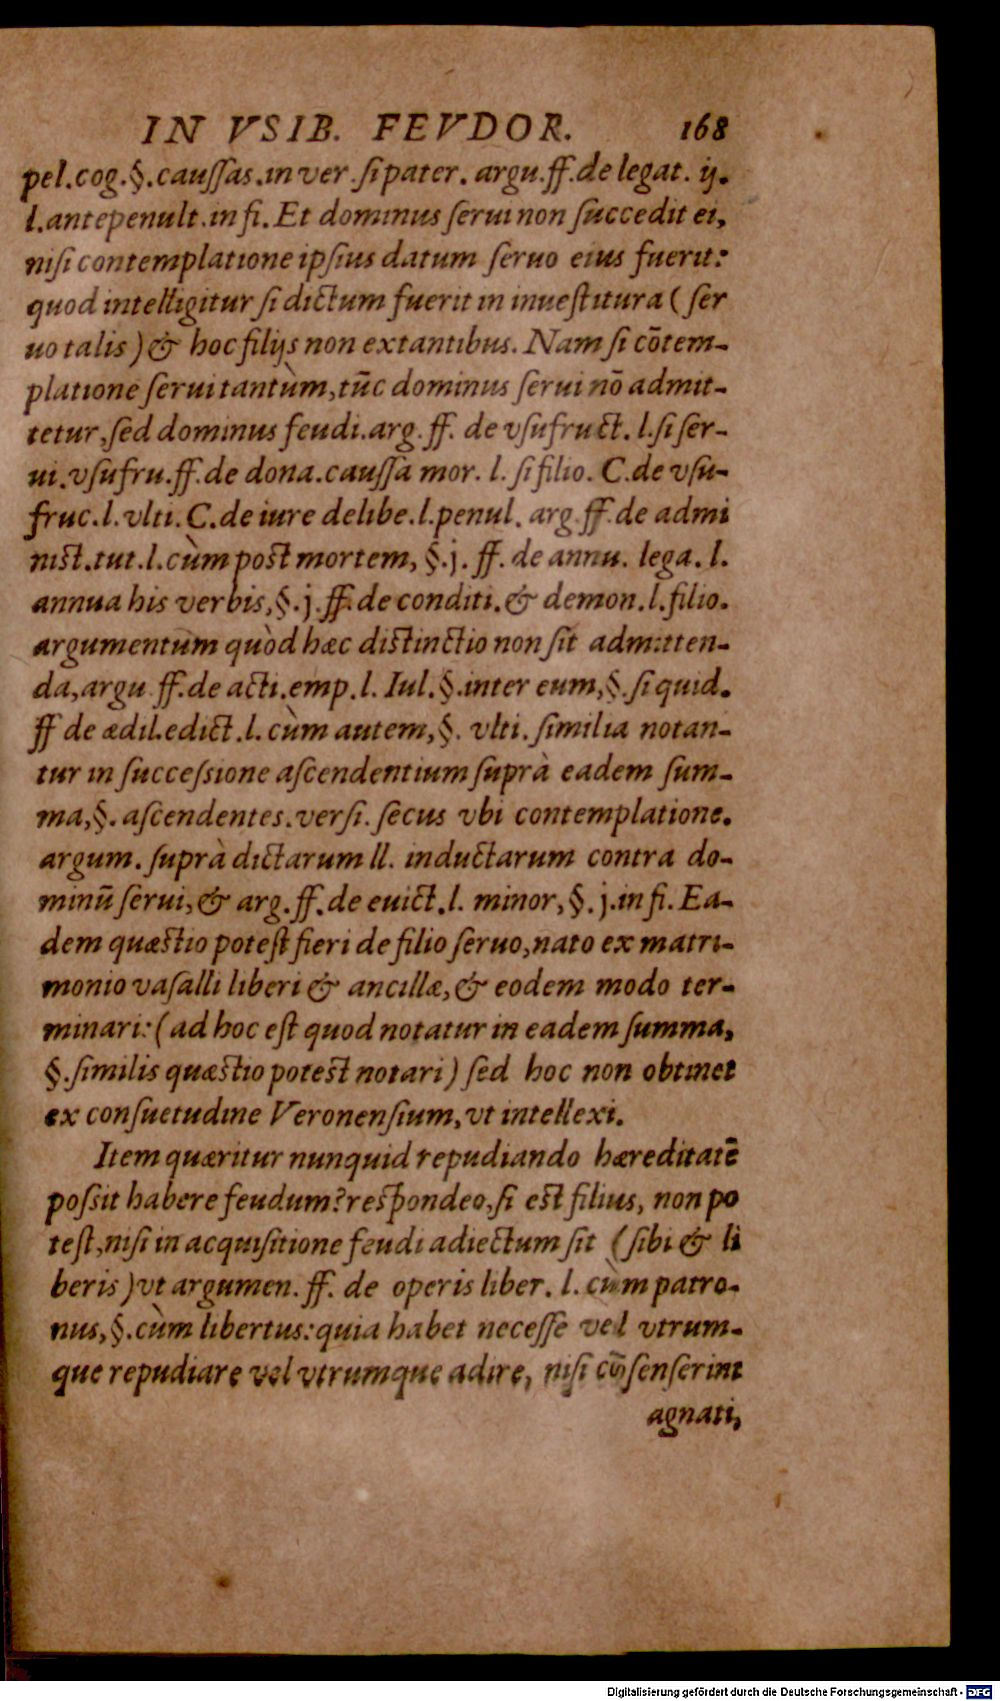 IN VSIB. FEVDOR. 168
pel.cog.§.caussas.in ver.si pater. argu.ff.de legat. ij.
l.antepenult.in fi. Et dominus serui non succedit ei,
nisi contemplatione ipsius datum seruo eius fuerit:
quod intelligitur si dictum fuerit in inuestitura (ser
uo talis) & hoc filijs non extantibus. Nam si cōtem-
platione serui tantùm, tūc dominus serui nō admit-
tetur, sed dominus feudi.arg. ff. de vsufruct. l.si ser-
ui.vsufru.ff.de dona.caussa mor. l. si filio. C.de vsu-
fruc.l.vlti.C.de iure delibe.l.penul. arg.ff.de admi
nist.tut.l.cùm post mortem, §.j. ff. de annu. lega. l.
annua his verbis,§.j.ff.de conditi.& demon.l.filio.
argumentum quòd hæc distinctio non sit admitten-
da,argu.ff.de acti.emp.l. Iul.§.inter eum,§.si quid.
ff de ædil.edict.l.cùm autem,§. vlti.similia notan-
tur in successione ascendentium suprà eadem sum-
ma,§.ascendentes.versi.secus vbi contemplatione.
argum.suprà dictarum ll. inductarum contra do-
minū serui, & arg.ff.de euict.l. minor,§.j.in fi. Ea-
dem quæstio potest fieri de filio seruo,nato ex matri-
monio vasalli liberi & ancillæ, & eodem modo ter-
minari:(ad hoc est quod notatur in eadem summa,
§.similis quæstio potest notari) sed hoc non obtinet
ex consuetudine Veronensium,vt intellexi.
Item quæritur nunquid repudiando hæreditatē
possit habere feudum?respondeo,si est filius, non po
test,nisi in acquisitione feudi adiectum sit (sibi & li
beris)vt argumen. ff. de operis liber. l. cùm patro-
nus,§.cùm libertus:quia habet necesse vel vtrum-
que repudiare vel vtrumque adire, nisi cōsenserint
agnati,
Digitalisierung gefördert durch die Deutsche Forschungsgemeinschaft - DFG